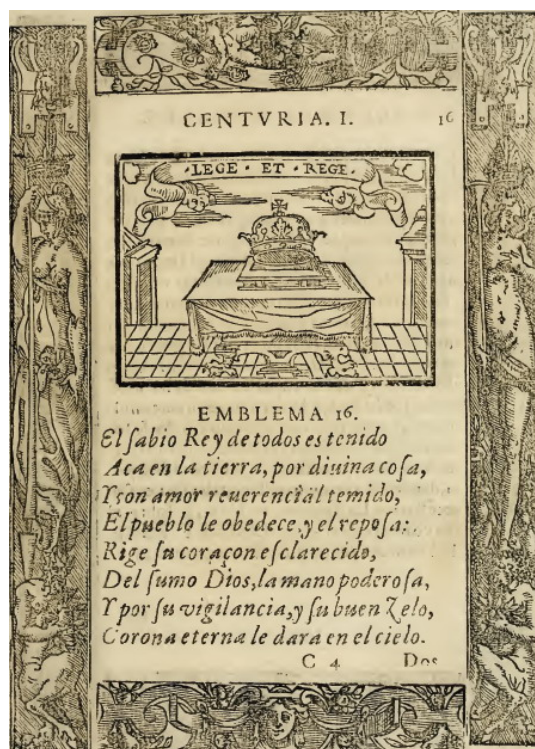 CENTVRIA. I. 16
·LEGE · ET · REGE·
EMBLEMA 16.
El ſabio Rey de todos es tenido
Aca en la tierra, por diuina coſa,
Y con amor reuerencial temido,
El pueblo le obedece, y el repoſa:
Rige ſu coraçon eſclarecido,
Del ſumo Dios, la mano poderoſa,
Y por ſu vigilancia, y ſu buen Zelo,
Corona eterna le dara en el cielo.
C 4 Dos